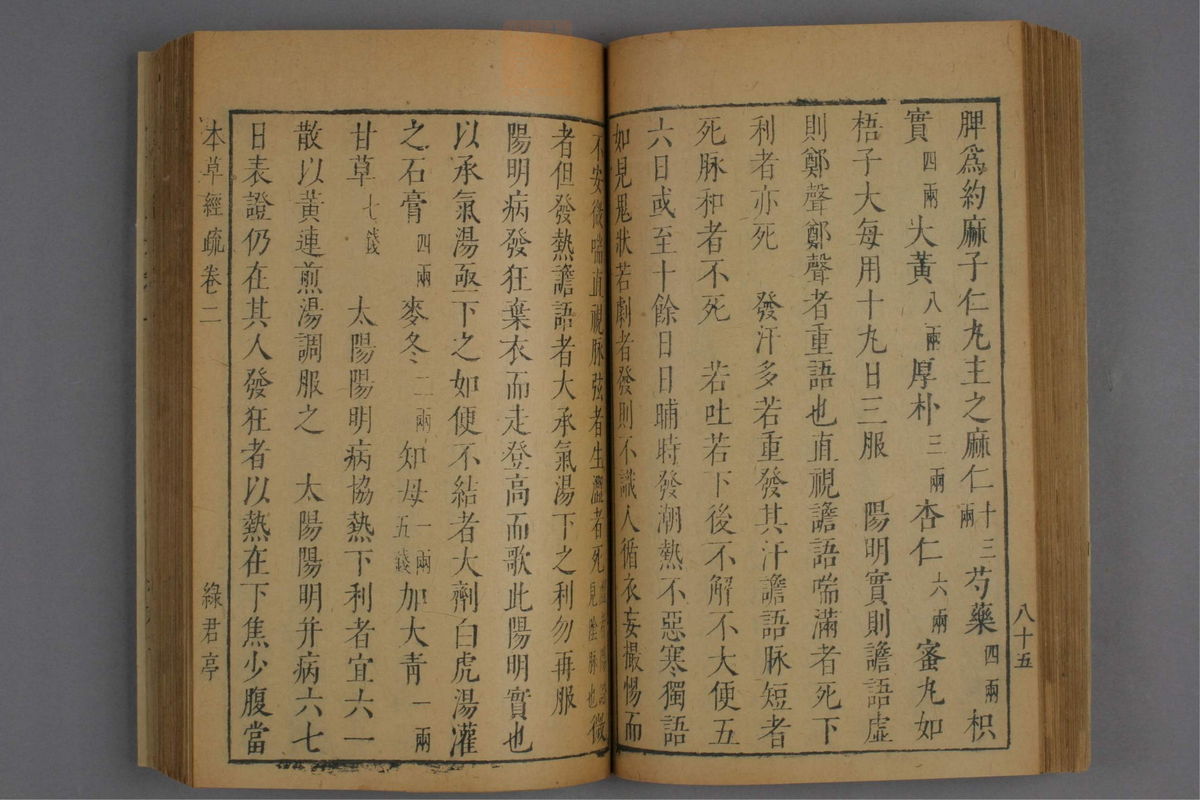 八十五
脾爲約麻子仁丸主之麻仁十三兩芍藥四兩枳
實四兩大黃八兩厚朴三兩杏仁六兩蜜丸如
梧子大每用十丸日三服 陽明實則譫語虛
則鄭聲鄭聲者重語也直視譫語喘滿者死下
利者亦死 發汗多若重發其汗譫語脉短者
死脉和者不死 若吐若下後不解不大便五
六日或至十餘日日晡時發潮熱不惡寒獨語
如見鬼狀若劇者發則不識人循衣妄撮惕而
不安微喘直視脉弦者生濇者死見陰脉也微
者但發熱譫語者大承氣湯下之利勿再服
陽明病發狂棄衣而走登高而歌此陽明實也
以承氣湯亟下之如便不結者大劑白虎湯灌
之石膏四兩麥冬二兩知母一兩五錢加大青一兩
甘草七錢 太陽陽明病協熱下利者宜六一
散以黃連煎湯調服之 太陽陽明并病六七
日表證仍在其人發狂者以熱在下焦少腹當
本草經疏卷二
綠君亭